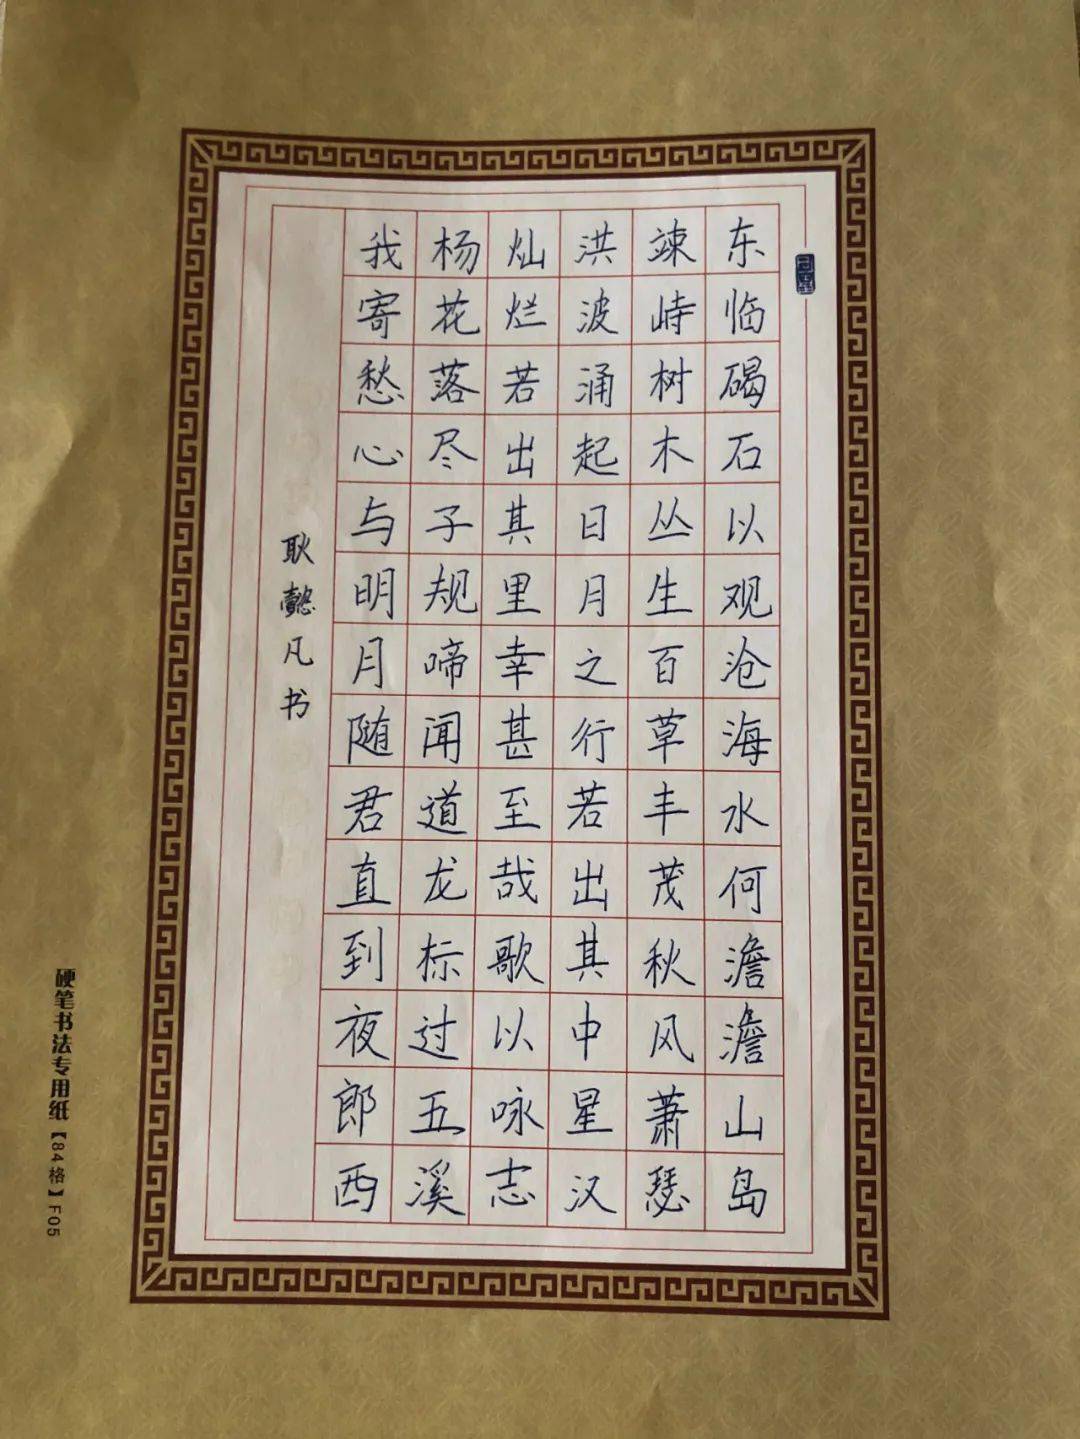 东临碣石以观沧海水何澹澹山岛
竦峙树木丛生百草丰茂秋风萧瑟
洪波涌起日月之行若出其中星汉
灿烂若出其里幸甚至哉歌以咏志
杨花落尽子规啼闻道龙标过五溪
我寄愁心与明月随君直到夜郎西
耿懿凡书
硬笔书法专用纸【84格】F05